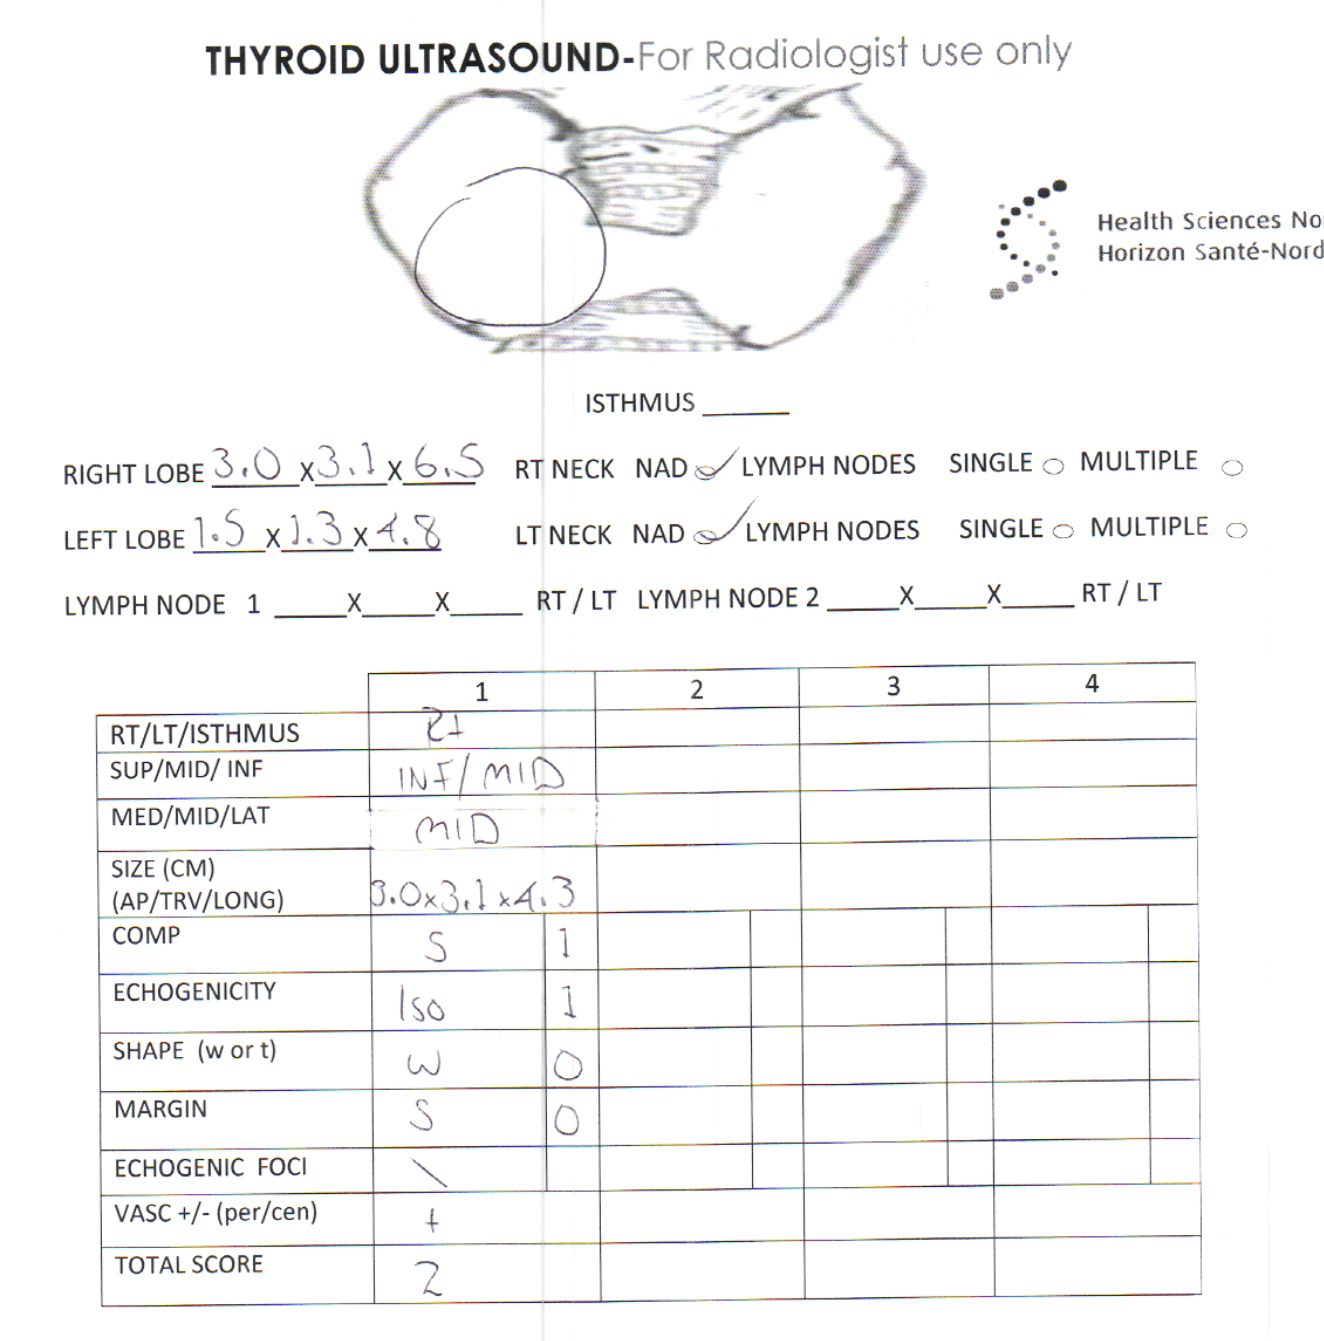 THYROID ULTRASOUND-For Radiologist use only
Health Sciences No
Horizon Santé-Nord
ISTHMUS ______
RIGHT LOBE 3.0 x 3.1 x 6.5 RT NECK NAD ✓ LYMPH NODES SINGLE ○ MULTIPLE ○
LEFT LOBE 1.5 x 1.3 x 4.8 LT NECK NAD ✓ LYMPH NODES SINGLE ○ MULTIPLE ○
LYMPH NODE 1 _____X_____X_____ RT / LT LYMPH NODE 2 _____X_____X_____ RT / LT
1 2 3 4
RT/LT/ISTHMUS Rt
SUP/MID/ INF INF/MID
MED/MID/LAT MID
SIZE (CM)
(AP/TRV/LONG) 3.0x3.1x4.3
COMP S 1
ECHOGENICITY Iso 1
SHAPE (w or t) W 0
MARGIN S 0
ECHOGENIC FOCI \
VASC +/- (per/cen) +
TOTAL SCORE 2